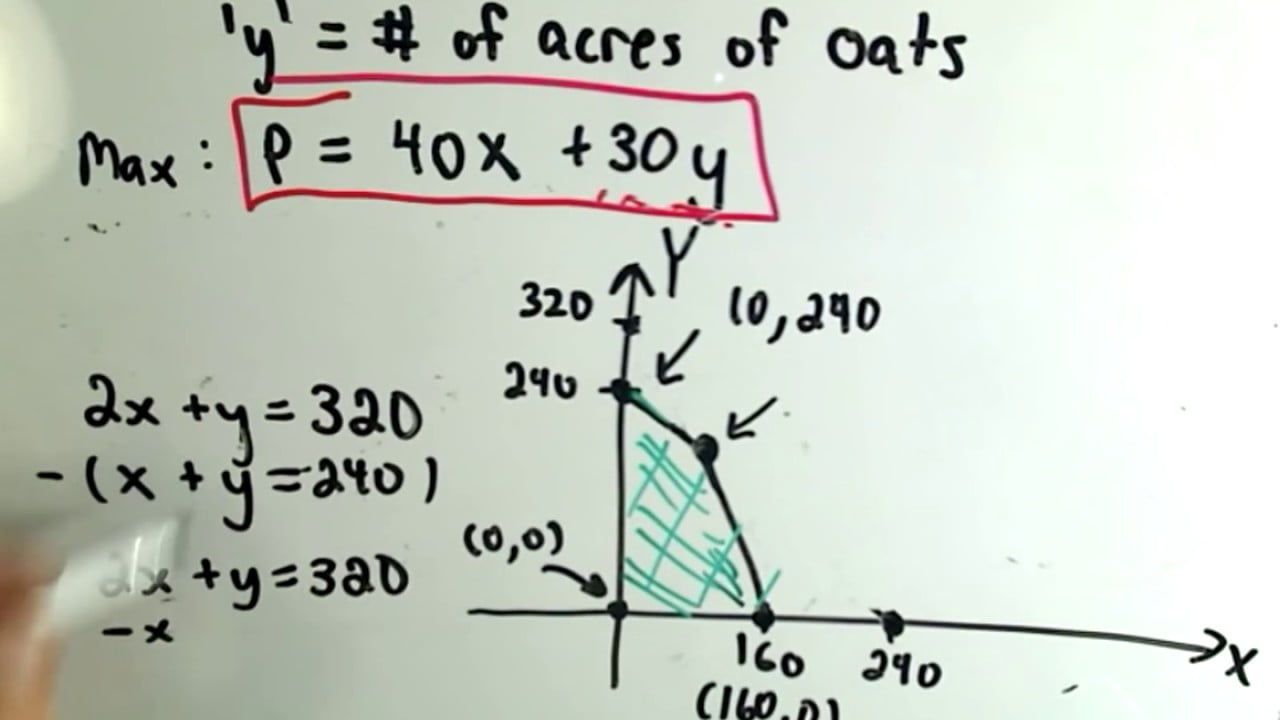 'y' = # of acres of oats
Max: P = 40x + 30y
Y
320
(0, 240
240
2x + y = 320
-(x + y = 240)
(0,0)
2x + y = 320
-x
160
240
X
(160,0)